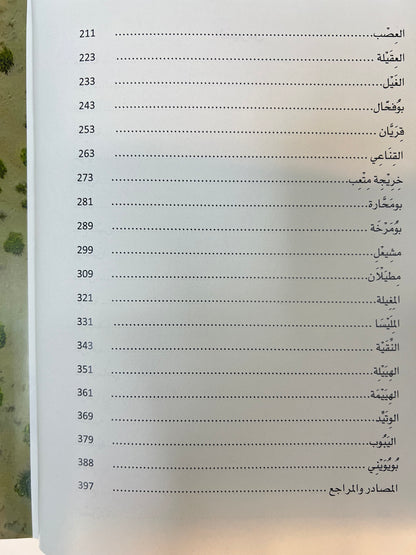 العِصْب ........ 211
العقَيْلة ........ 223
الغَيْل ........ 233
بوُفحّال ........ 243
قِريَّان ........ 253
القِنَاعِي ........ 263
خرِيْجِة مِتْعِب ........ 273
بومَحَّارة ........ 281
بُومَرْخَة ........ 289
مشيعْل ........ 299
مِطيَلَان ........ 309
المِغِيلة ........ 321
المِلَيْسَا ........ 331
النَّقيَّة ........ 343
الهِيَيْلِة ........ 351
الهِيَيْمَة ........ 361
الوِتيَّد ........ 369
اليَبُّوب ........ 379
بُويُوَيْني ........ 388
المصادر والمراجع ........ 397